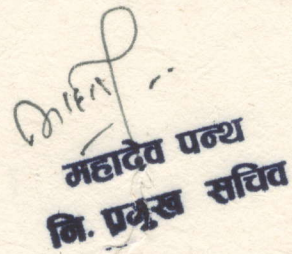 महादेव पन्थ
नि. प्रमुख सचिव